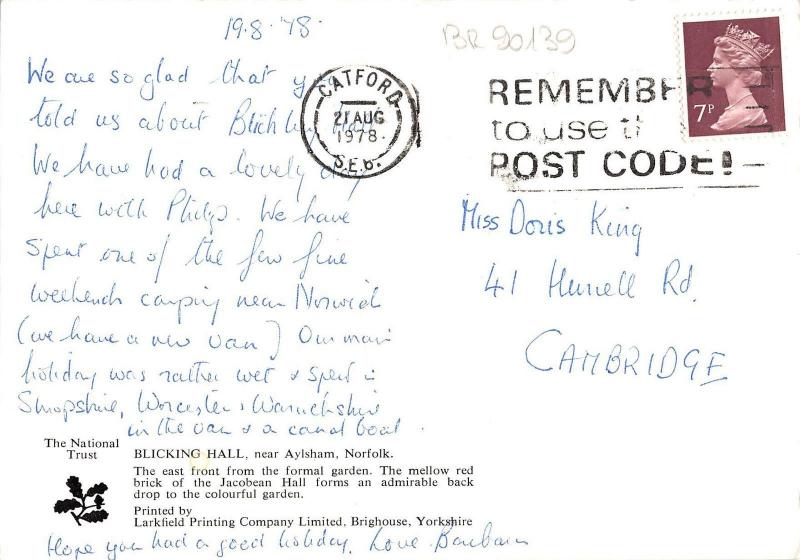 19.8.'78.
BR 90139
We are so glad that you
told us about Blickling Hall.
We have had a lovely day
here with Philip. We have
spent one of the few fine
weekends camping near Norwich
(we have a new van) Our main
holiday was rather wet & spent in
Shropshire, Worcester & Warwickshire
in the van & a canal boat.
CATFORD
21 AUG
1978
S.E.6.
REMEMBER
to use th
POST CODE!
7P
Miss Doris King
41 Hurrell Rd.
CAMBRIDGE
The National
Trust
BLICKING HALL, near Aylsham, Norfolk.
The east front from the formal garden. The mellow red
brick of the Jacobean Hall forms an admirable back
drop to the colourful garden.
Printed by
Larkfield Printing Company Limited, Brighouse, Yorkshire
Hope you had a good holiday. Love Barbara